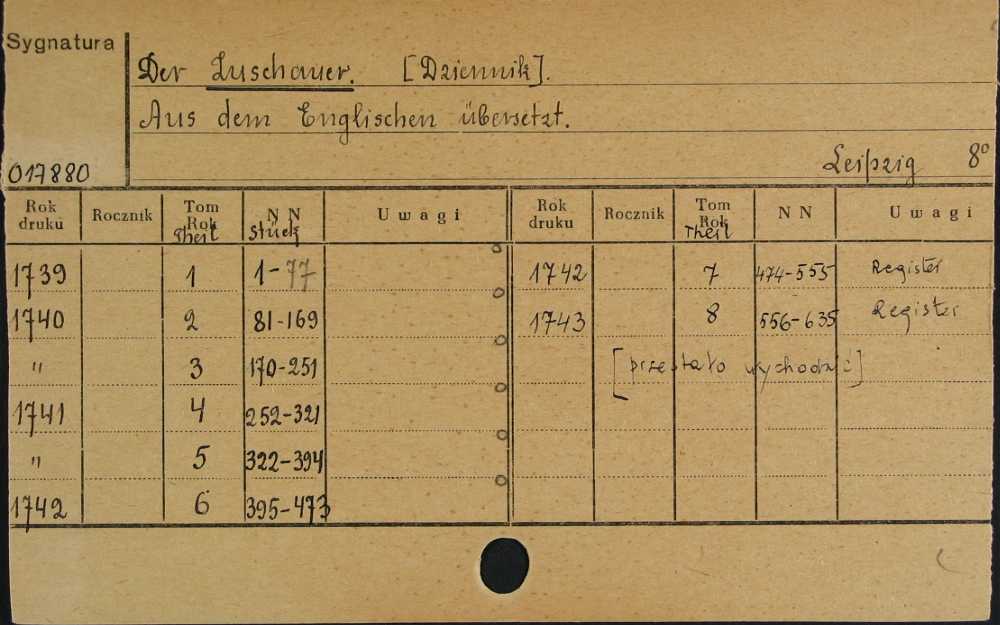 Sygnatura
Der Zuschauer. [Dziennik].
Aus dem Englischen übersetzt.
017880 Leipzig 8°
Rok druku Rocznik Tom Rok Theil N N Stück Uwagi Rok druku Rocznik Tom Rok Theil N N Uwagi
1739 1 1-77 1742 7 474-555 Register
1740 2 81-169 1743 8 556-635 Register
" 3 170-251 [przestało wychodzić]
1741 4 252-321
" 5 322-394
1742 6 395-473